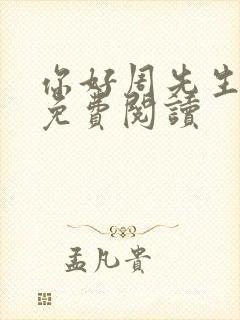 你好周先生
免費閱讀
孟凡貴